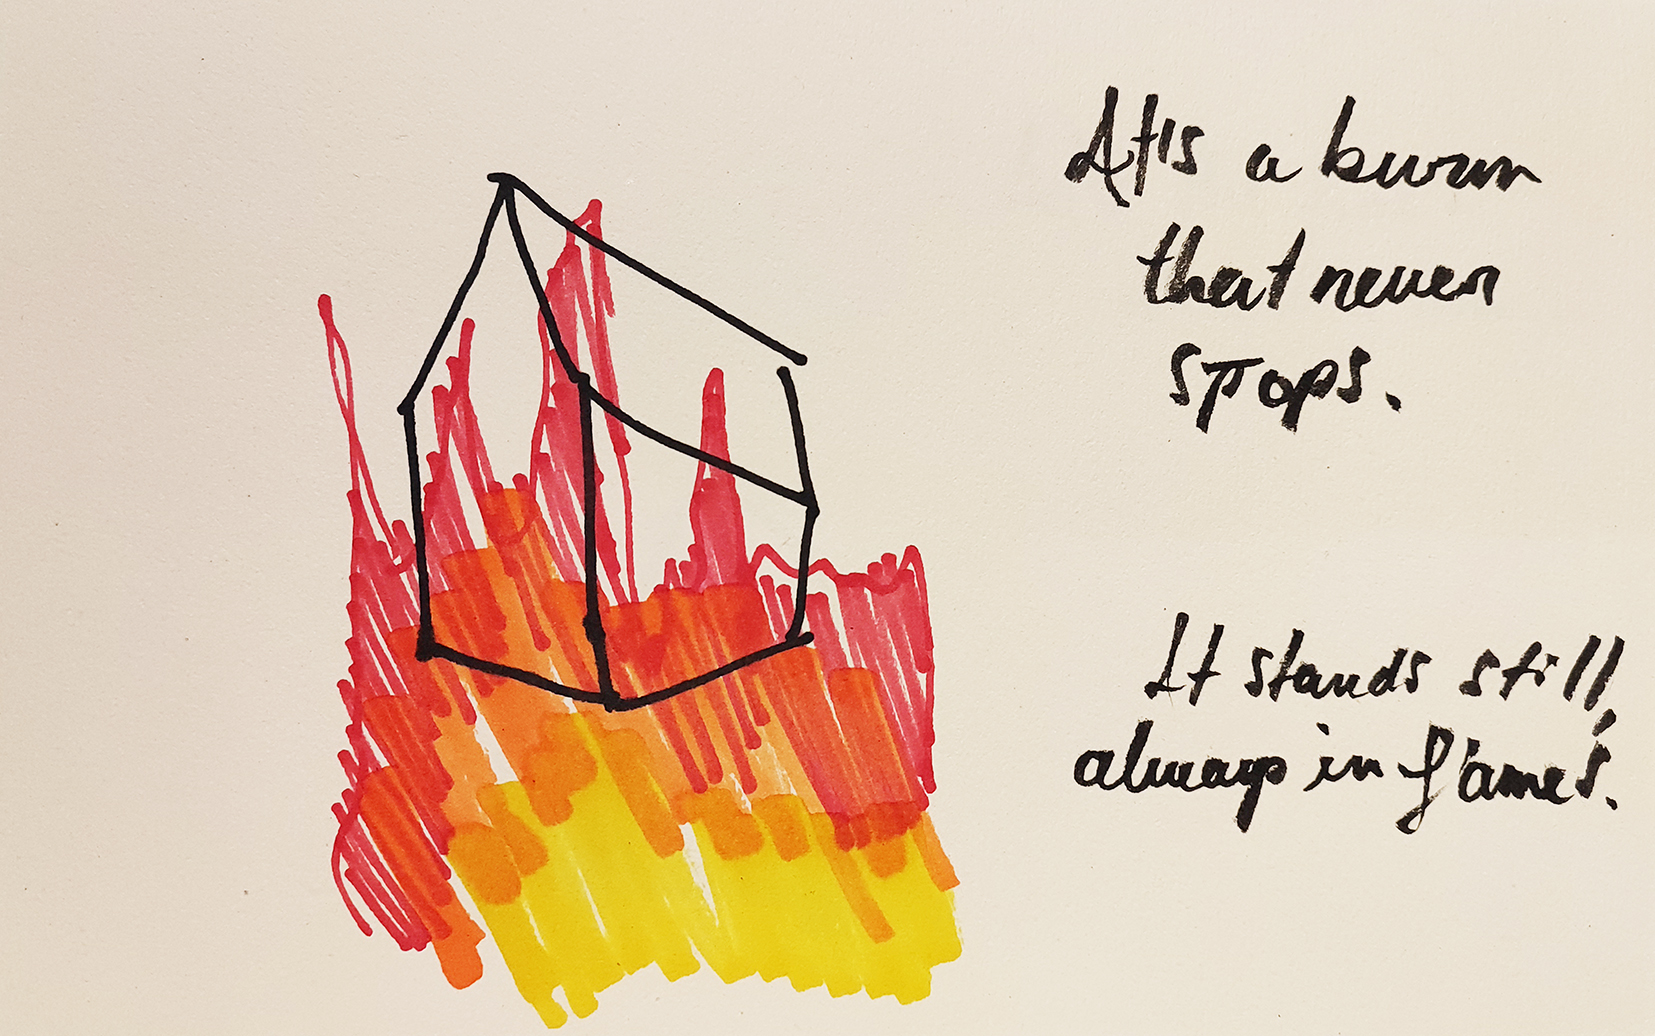 It's a burn
that never
stops.
It stands still,
always in flames.